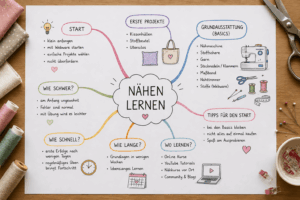 START
• klein anfangen
• mit Webware starten
• einfache Projekte wählen
• nicht überfordern
ERSTE PROJEKTE
• Kissenhüllen
• Stoffbeutel
• Utensilos
GRUNDAUSSTATTUNG
(BASICS)
• Nähmaschine
• Stoffschere
• Garn
• Stecknadeln / Klammern
• Maßband
• Nahttrenner
• Stoffe (Webware)
NÄHEN
LERNEN
WIE SCHWER?
• am Anfang ungewohnt
• Fehler sind normal
• mit Übung wird es leichter
WIE SCHNELL?
• erste Erfolge nach
wenigen Tagen
• regelmäßiges Üben
bringt Fortschritt
WIE LANGE?
• Grundlagen in wenigen
Wochen
• lebenslanges Lernen
WO LERNEN?
• Online Kurse
• YouTube Tutorials
• Nähkurse vor Ort
• Community & Blogs
TIPPS FÜR DEN START
• bei den Basics bleiben
• nicht alles auf einmal kaufen
• Spaß am Ausprobieren